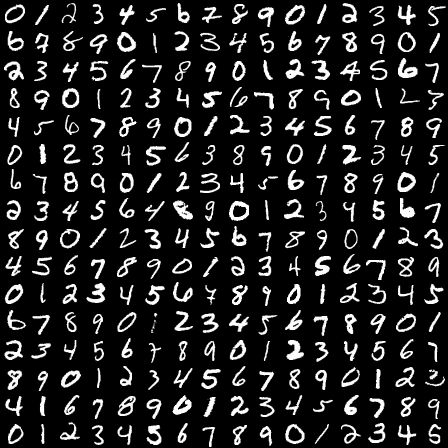 0 1 2 3 4 5 6 7 8 9 0 1 2 3 4 5
6 7 8 9 0 1 2 3 4 5 6 7 8 9 0 1
2 3 4 5 6 7 8 9 0 1 2 3 4 5 6 7
8 9 0 1 2 3 4 5 6 7 8 9 0 1 2 3
4 5 6 7 8 9 0 1 2 3 4 5 6 7 8 9
0 1 2 3 4 5 6 3 8 9 0 1 2 3 4 5
6 7 8 9 0 1 2 3 4 5 6 7 8 9 0 1
2 3 4 5 6 4 9 0 1 2 3 4 5 6 7
8 9 0 1 2 3 4 5 6 7 8 9 0 1 2 3
4 5 6 7 8 9 0 1 2 3 4 5 6 7 8 9
0 1 2 3 4 5 6 7 8 9 0 1 2 3 4 5
6 7 8 9 0 1 2 3 4 5 6 7 8 9 0 1
2 3 4 5 6 7 8 9 0 1 2 3 4 5 6 7
8 9 0 1 2 3 4 5 6 7 8 9 0 1 2 3
4 1 6 7 8 9 0 1 2 3 4 5 6 7 8 9
0 1 2 3 4 5 6 7 8 9 0 1 2 3 4 5